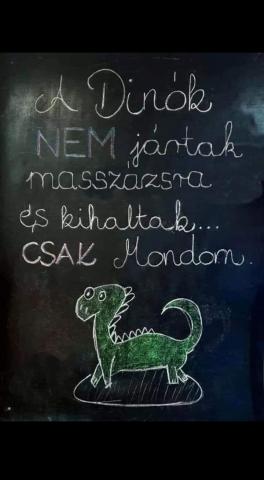 A Dinók
NEM jártak
masszázsra
és kihaltak...
CSAK Mondom.